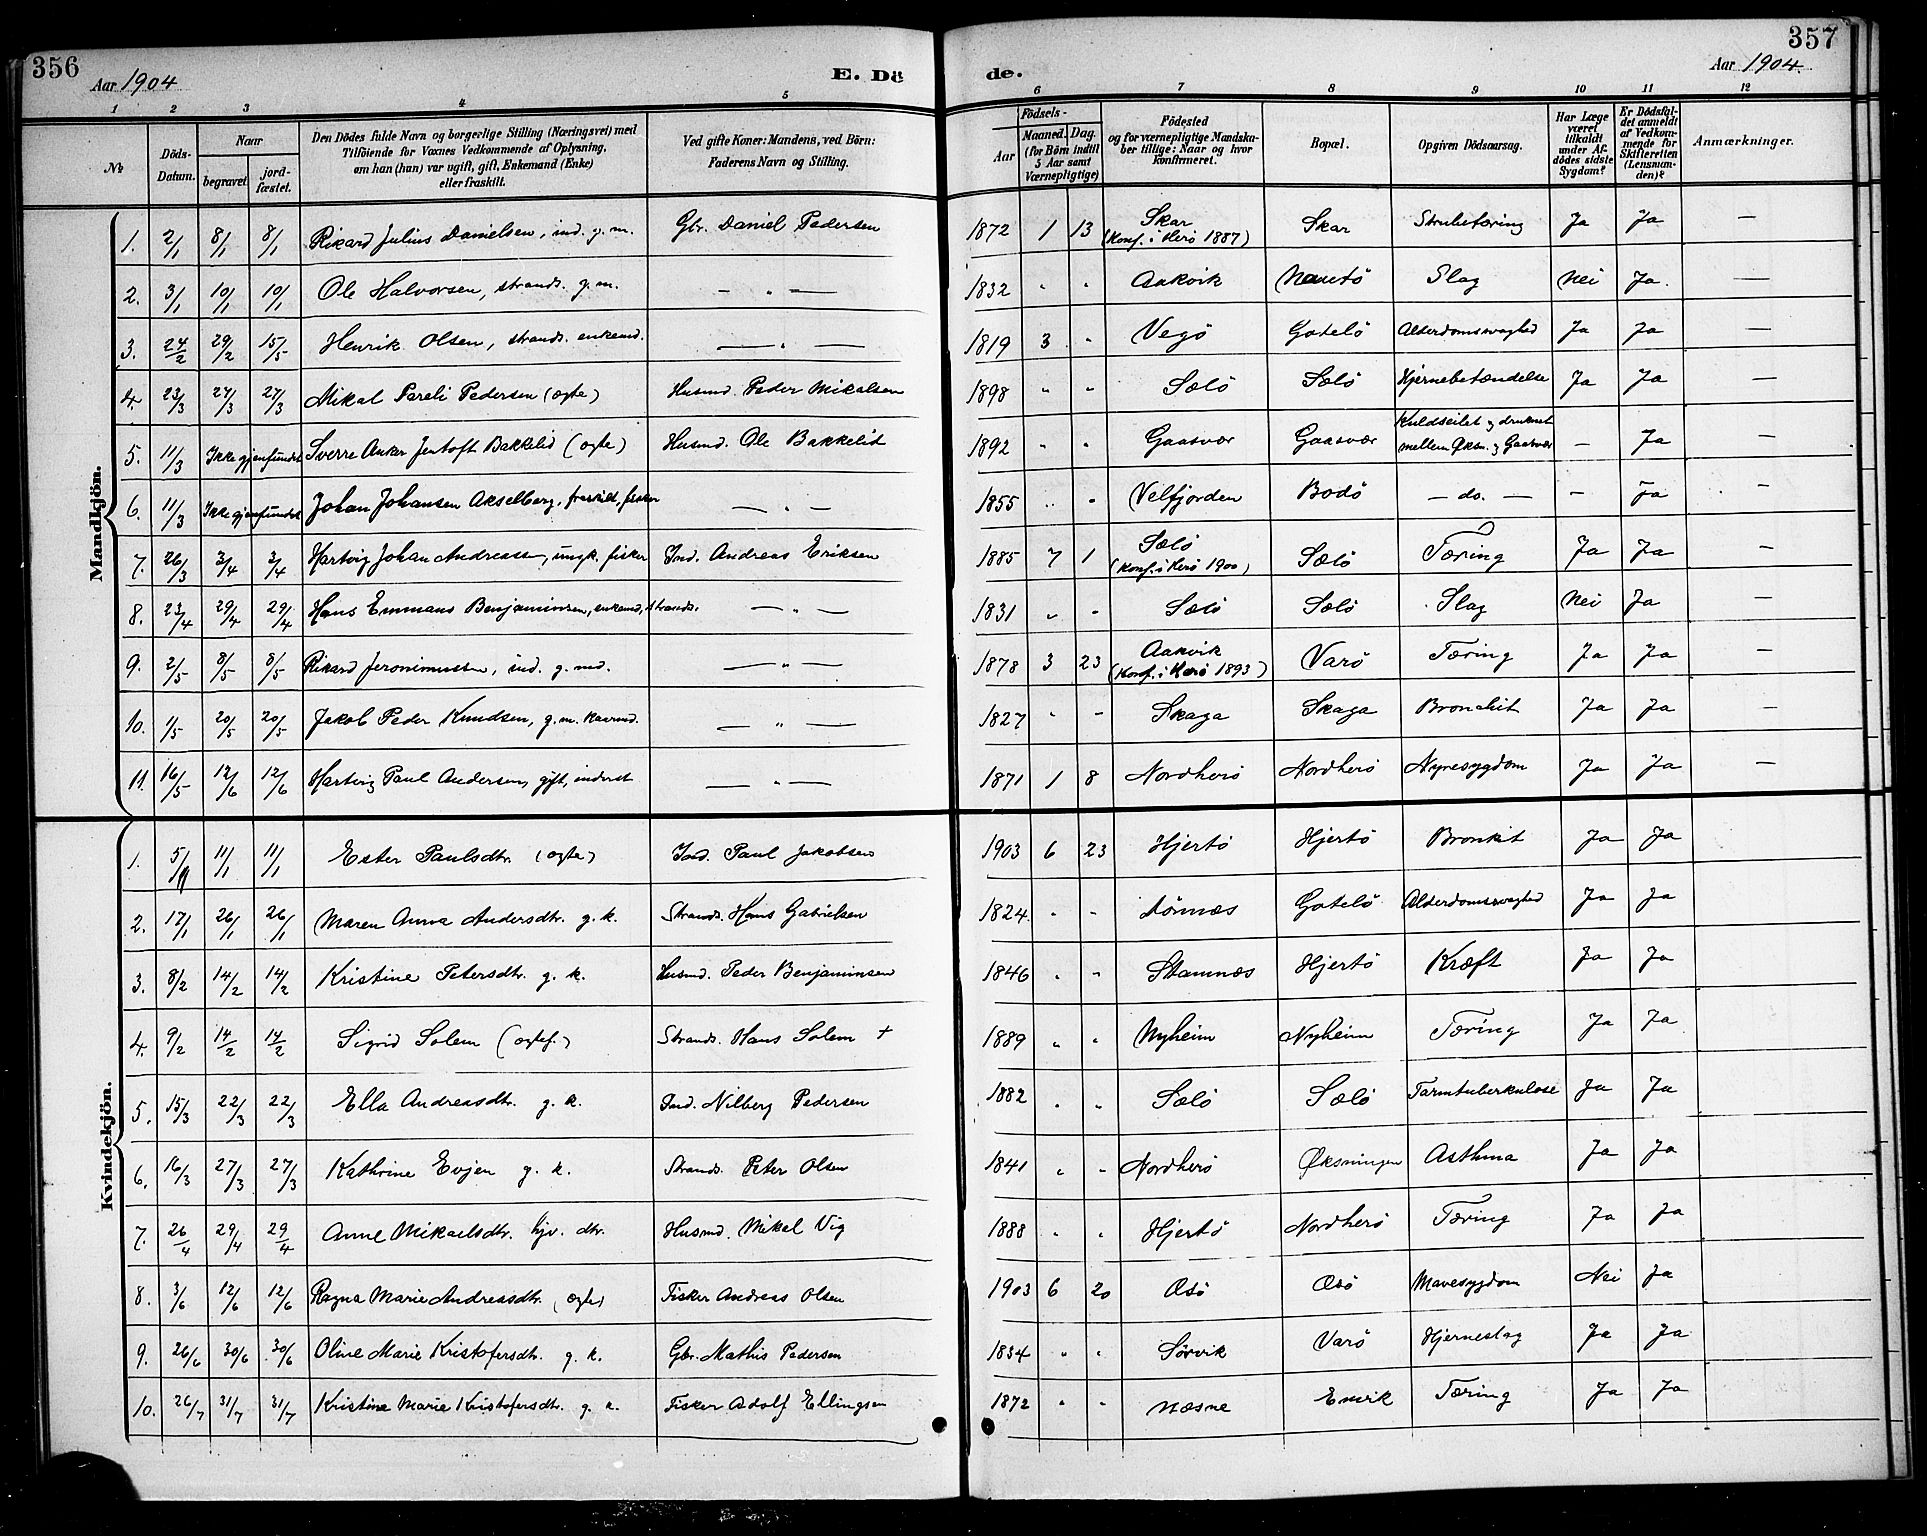 356
Aar 1904
E. Döde.
357
Aar 1904.
1 2 3 4 5 6 7 8 9 10 11 12
№
Döds-Datum.
Naar
begravet.
jordfæstet.
Den Dödes fulde Navn og borgerlige Stilling (Næringsvei) med
Tilföiende for Voxnes Vedkommende af Oplysning,
om han (hun) var ugift, gift, Enkemand (Enke)
eller fraskilt.
Ved gifte Koner: Mandens, ved Börn:
Faderens Navn og Stilling.
Födsels-
Aar
Maaned. Dag.
(for Börn indtil
5 Aar samt
Værnepligtige)
Födested
og for værnepligtige Mandskaber tillige: Naar og hvor
Konfirmeret.
Bopæl.
Opgiven Dödsaarsag.
Har Læge
været
tilkaldt
under Afdödes sidste
Sygdom?
Er Dödsfaldet anmeldt
af Vedkommende for
Skifteretten
(Lensmanden)?
Anmærkninger.
Mandkjön.
1. 2/1 8/1 8/1 Rikard Julius Danielsen, ind. g. m. Gbr. Daniel Pedersen 1872 1 13 Skar (Konf. i Herö 1887) Skar Strubetæring Ja Ja —
2. 3/1 10/1 10/1 Ole Halvorsen, strands. g. m. — " — 1832 " " Aakvik Nautö Slag Nei Ja. —
3. 24/2 29/2 15/5 Henrik Olsen, strands. enkemd. — " — 1819 3 " Vegö Gotelö Alderdomssvaghed Ja Ja —
4. 23/3 27/3 27/3 Mikal Pareli Pedersen (ægte) Husmd. Peder Mikalsen 1898 " " Sælö Sælö Hjernebetændelse Ja Ja —
5. 11/3 Ikke gjenfundet Sverre Anker Jentoft Bakkelid (ægte) Husmd. Ole Bakkelid 1892 " " Gaasvær Gaasvær Kuldseilet og druknet mellem Øksn. og Gaasvær — Ja
6. 11/3 Ikke gjenfundet Johan Johansen Akselberg, fraskilt, fisker — " — 1855 " " Velfjorden Bodö — do. — — Ja —
7. 26/3 3/4 3/4 Hartvig Johan Andreassen, ungk. fisker Ind. Andreas Eriksen 1885 7 1 Sælö (Konf. i Herö 1900) Sælö Tæring Ja Ja —
8. 23/4 29/4 29/4 Hans Emmans Benjaminsen, enkemd, strands. — " — 1831 " " Sælö Sælö Slag Nei Ja —
9. 2/5 8/5 8/5 Rikard Jeronimussen, ind. g. md. — " — 1878 3 23 Aakvik (Konf. i Herö 1893) Varö Tæring Ja Ja —
10. 1/5 20/5 20/5 Jakob Peder Knudsen, g. m. kaarmd. — " — 1827 " " Skaga Skaga Bronchit Ja Ja —
11. 16/5 12/6 12/6 Hartvig Paul Andersen, gift, inderst — " — 1871 1 8 Nordherö Nordherö Nyresygdom Ja Ja —
Kvindekjön.
1. 5/1 11/1 11/1 Ester Paulsdtr. (ægte) Ind. Paul Jakobsen 1903 6 23 Hjertö Hjertö Bronkit Ja Ja
2. 17/1 26/1 26/1 Maren Anna Andersdtr. g. k. Strands. Hans Gabrielsen 1824. " " Lönnæs Gotelö Alderdomssvaghed Ja Ja
3. 8/2 14/2 14/2 Kristine Petersdtr. g. k. Husmd. Peder Benjaminsen 1846 " " Stamnæs Hjertö Kræft Ja Ja
4. 9/2 14/2 14/2 Sigrid Solem (ægtef.) Strands. Hans Solem + 1889 " " Nyheim Nyheim Tæring Ja Ja
5. 15/3 22/3 22/3 Ella Andreasdtr. g. k. Ind. Nilberg Pedersen 1882 " " Sælö Sælö Tarmtuberkulose Ja Ja
6. 16/3 27/3 27/3 Kathrine Evjen g. k. Strands. Peter Olsen 1841 " " Nordherö Øksningen Asthma Ja Ja
7. 26/4 29/4 29/4 Anne Mikaelsdtr. hjv. dtr. Husmd. Mikal Vig 1888 " " Hjertö Nordherö Tæring Ja Ja
8. 3/6 12/6 12/6 Ragna Marie Andreasdtr. (ægte) Fisker Andreas Olsen 1903 6 20 Osö Osö Mavesygdom Nei Ja
9. 26/6 30/6 30/6 Oline Marie Kristofersdtr. g. k. Gbr. Mathis Pedersen 1834 " " Sörvik Varö Hjerneslag Ja Ja
10. 26/7 31/7 31/7 Kristine Marie Kristofersdtr. g. k. Fisker Adolf Ellingsen 1872 " " Næsne Tæring Ja Ja